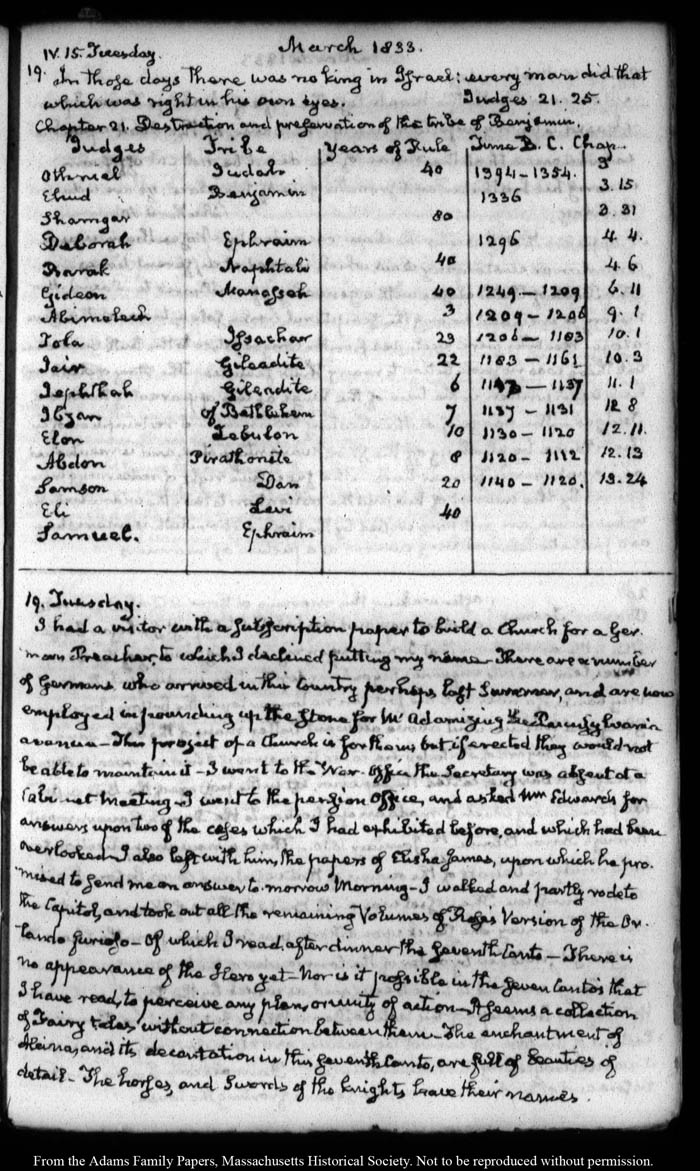 March 1833.
IV. 15. Tuesday.
19. In those days there was no king in Israel: every man did that
which was right in his own eyes. Judges 21. 25.
Chapter 21. Destruction and preservation of the tribe of Benjamin.
Judges Tribe Years of Rule Time B. C. Chap.
Othniel Judah 40 1394-1354. 3
Ehud Benjamin 1336 3.15
Shamgar 80 3.31
Deborah Ephraim 1296 4.4.
Barak Naphtali 40 4 6
Gideon Manasseh 40 1249-1209 6.11
Abimelech 3 1209-1206 9.1
Tola Issachar 23 1206-1183 10.1
Jair Gileadite 22 1183-1161 10.3
Jephthah Gileadite 6 1143-1137 11.1
Ibzan of Bethlehem 7 1137-1131 12 8
Elon Zebulon 10 1130-1120 12.11.
Abdon Pirathonite 8 1120-1112 12.13
Samson Dan 20 1140-1120. 13.24
Eli Levi 40
Samuel. Ephraim
19. Tuesday.
I had a visitor with a subscription paper to build a Church for a Ger-
man Preacher, to which I declined putting my name. There are a number
of Germans who arrived in this Country perhaps last Summer, and are now
employed in pounding up the Stone for McAdamizing the Pennsylvania
avenue- This project of a Church is for them, but if erected they would not
be able to maintain it- I went to the War-Office the Secretary was absent at a
Cabinet Meeting- I went to the pension Office, and asked Mr Edwards for
answers upon two of the cases which I had exhibited before, and which had been
overlooked- I also left with him, the papers of Elisha James, upon which he pro-
mised to send me an answer to-morrow Morning- I walked and partly rode to
the Capitol, and took out all the remaining Volumes of Rose's Version of the Or-
lando furioso- Of which I read, after dinner the seventh Canto- There is
no appearance of the Hero yet- Nor is it possible in the seven Cantos that
I have read, to perceive any plan, or unity of action- It seems a collection
of Fairy tales, without connection between them- The enchantment of
Alcina, and its decantation in this seventh Canto, are full of beauties of
detail- The horses, and swords of the knights have their names.
From the Adams Family Papers, Massachusetts Historical Society. Not to be reproduced without permission.